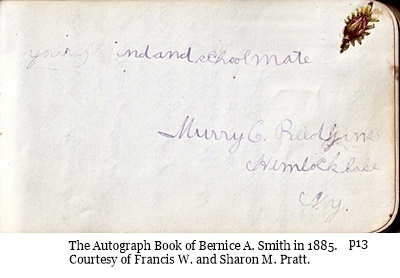 your indandschoolmate
Murry C.
Hemlock Lake
Ny.
The Autograph Book of Bernice A. Smith in 1885. p13
Courtesy of Francis W. and Sharon M. Pratt.